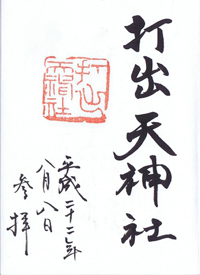 打出天神社
打出
天神社
平成二十二年
八月八日
参拝